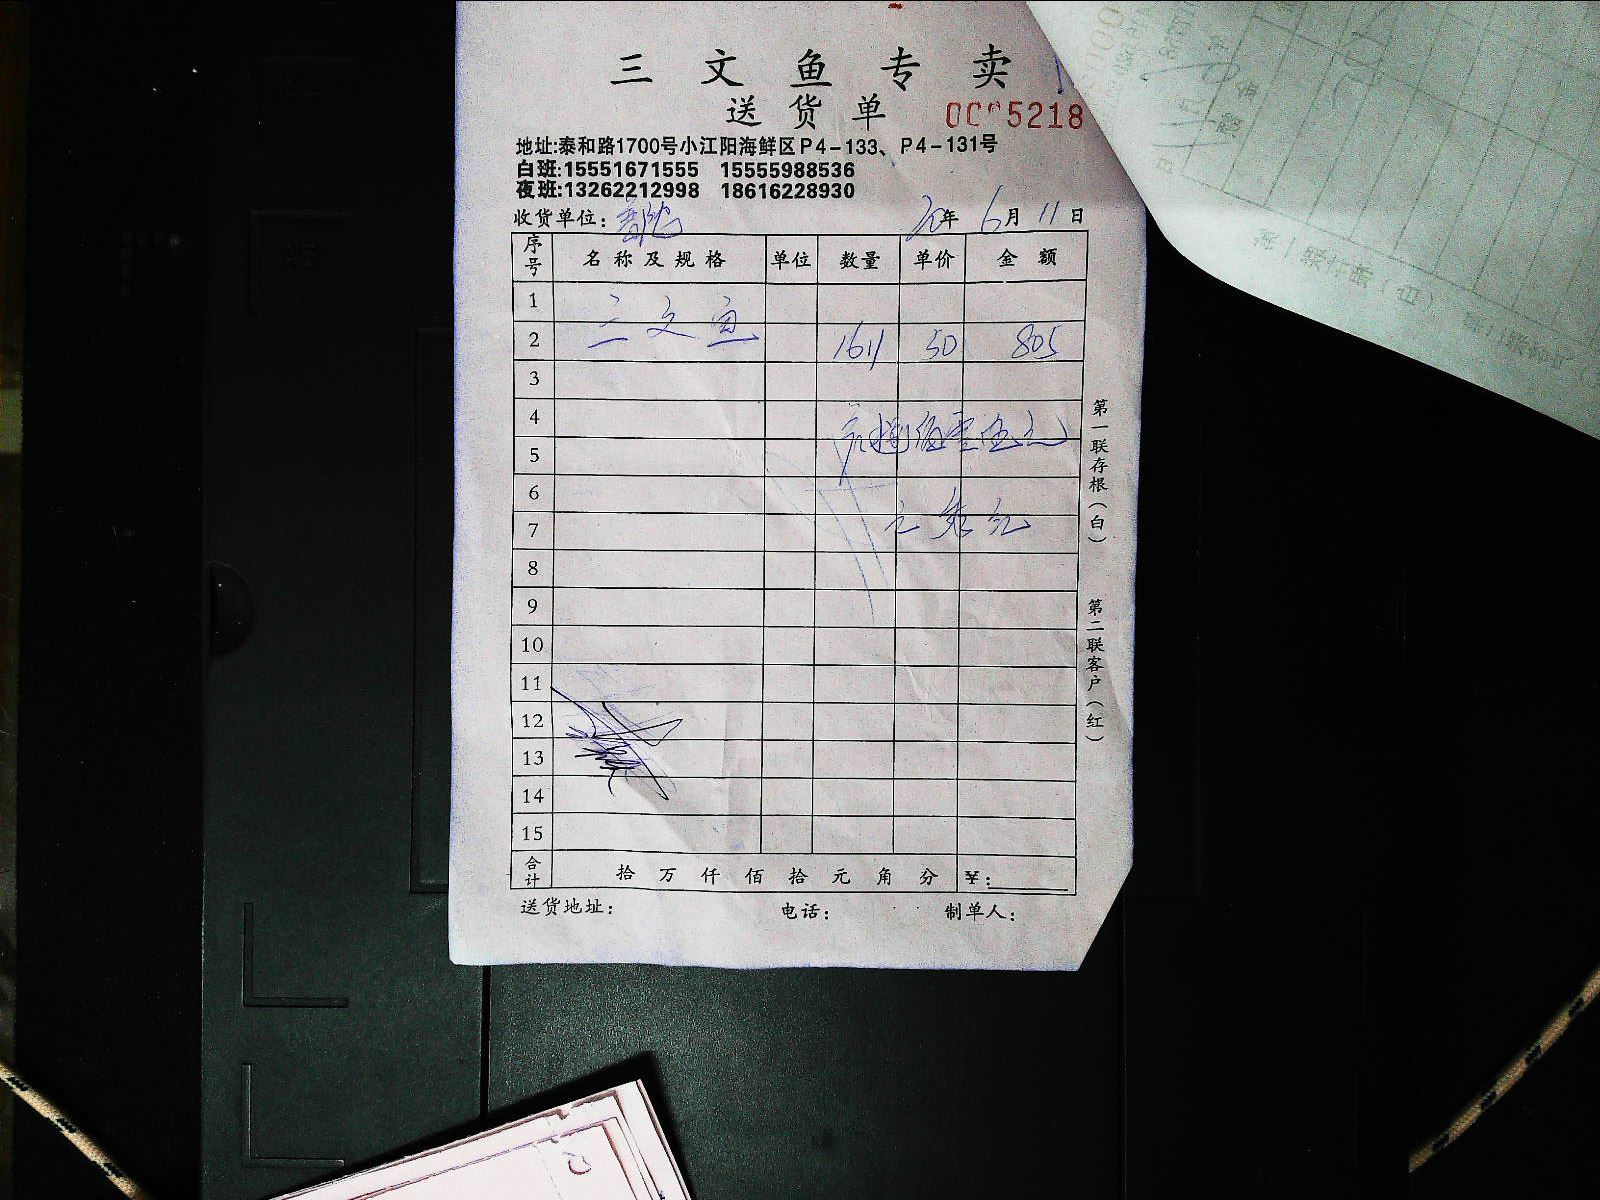 三文鱼专卖
送货单
5218
地址:泰和路1700号小江阳海鲜区P4-133、P4-131号
白班:15551671555 15555988536
夜班:13262212998 18616228930
收货单位: 年 6月 11日
序号 名称及规格 单位 数量 单价 金额
1
三文鱼
2 50 805
3
4
5
6
7
8
9
10
11
12
13
14
15
合计 拾万仟佰拾元角分 ¥:
送货地址: 电话: 制单人:
第一联存根(白)
第二联客户(红)